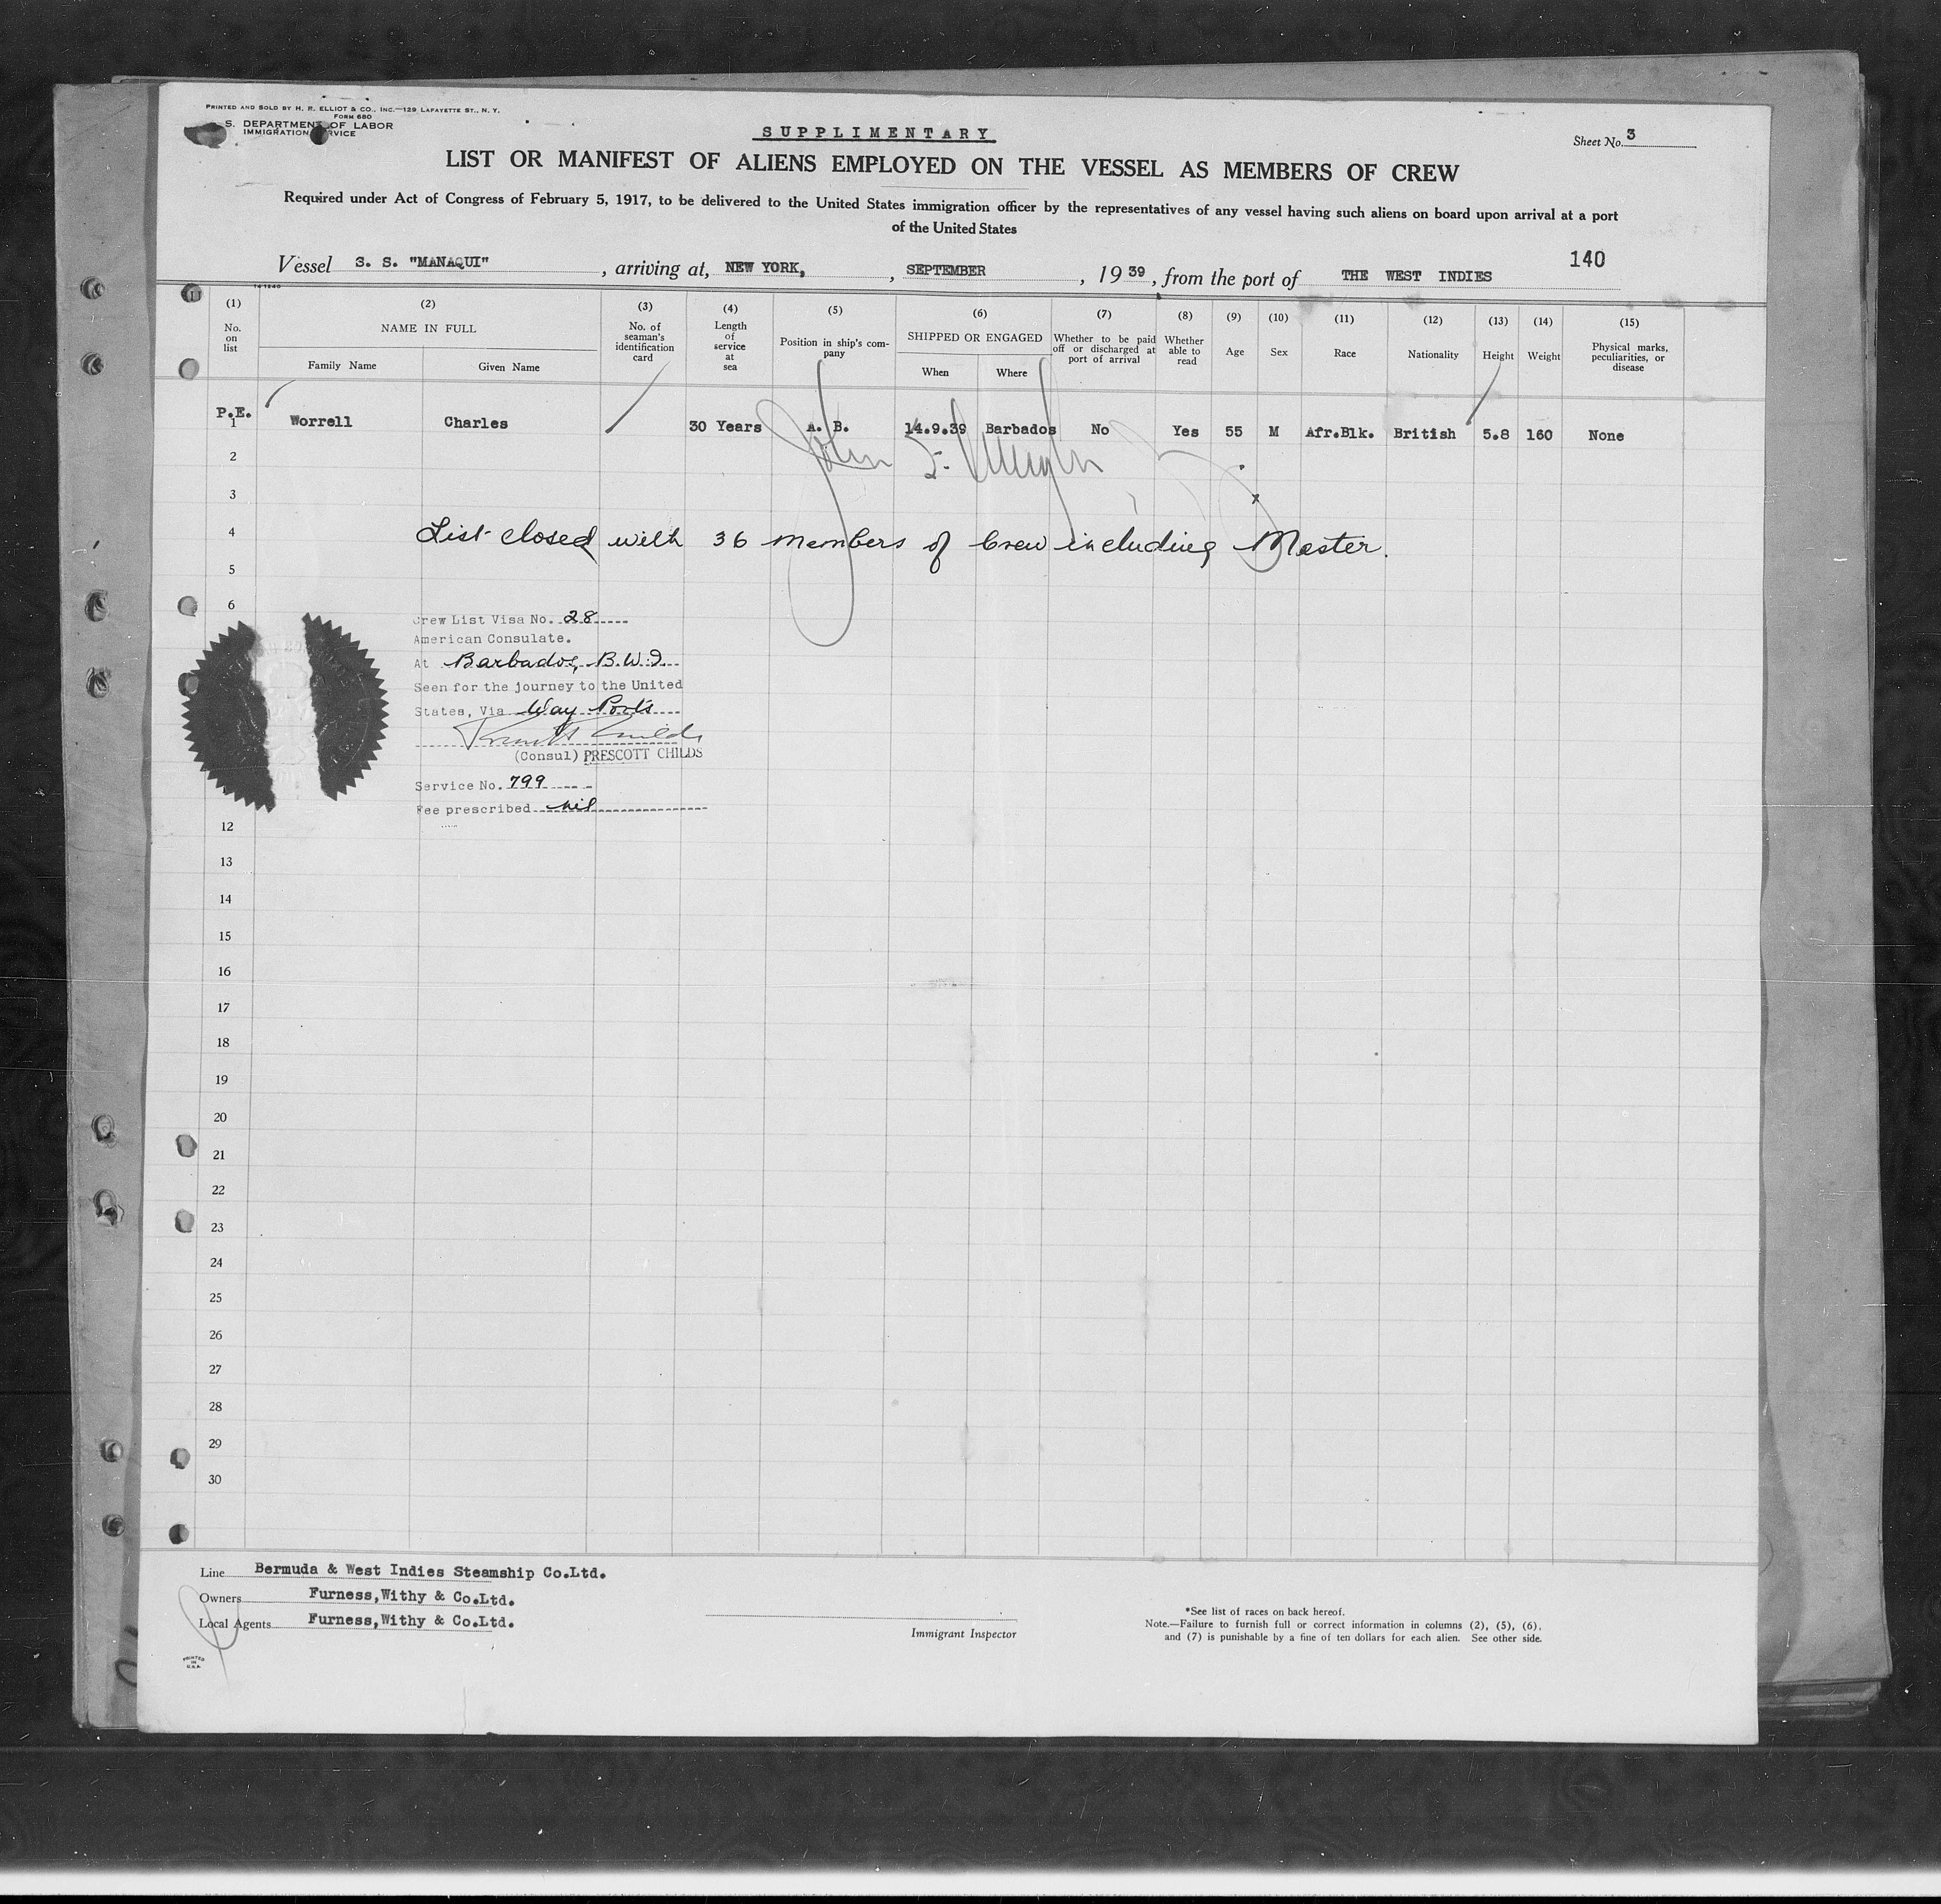 PRINTED AND SOLD BY H. R. ELLIOT & CO., INC.—129 LAFAYETTE ST., N. Y.
FORM 680
S. DEPARTMENT OF LABOR
IMMIGRATION
SUPPLIMENTARY
Sheet No. 3
LIST OR MANIFEST OF ALIENS EMPLOYED ON THE VESSEL AS MEMBERS OF CREW
Required under Act of Congress of February 5, 1917, to be delivered to the United States immigration officer by the representatives of any vessel having such aliens on board upon arrival at a port
of the United States
140
Vessel S. S. "MANAQUI", arriving at, NEW YORK, , SEPTEMBER , 19 39, from the port of THE WEST INDIES
(1) (2) (3) (4) (5) (6) (7) (8) (9) (10) (11) (12) (13) (14) (15)
No. on list
NAME IN FULL
Family Name Given Name
No. of seaman's identification card
Length of service at sea
Position in ship's company
SHIPPED OR ENGAGED
When Where
Whether to be paid off or discharged at port of arrival
Whether able to read
Age
Sex
Race
Nationality
Height
Weight
Physical marks, peculiarities, or disease
P.E.
1 Worrell Charles 30 Years A. B. 14.9.39 Barbados No Yes 55 M Afr.Blk. British 5.8 160 None
2
John
3
x
4 List closed with 36 members of Crew including Master.
5
6
Crew List Visa No. 28
American Consulate.
At Barbados, B.W.I.
Seen for the journey to the United
States, Via Way Ports
(Consul) PRESCOTT CHILDS
Service No. 799
Fee prescribed nil
12
13
14
15
16
17
18
19
20
21
22
23
24
25
26
27
28
29
30
Line Bermuda & West Indies Steamship Co.Ltd.
Owners Furness,Withy & Co.Ltd.
Local Agents Furness,Withy & Co.Ltd.
Immigrant Inspector
*See list of races on back hereof.
Note.—Failure to furnish full or correct information in columns (2), (5), (6),
and (7) is punishable by a fine of ten dollars for each alien. See other side.
PRINTED
IN
U.S.A.